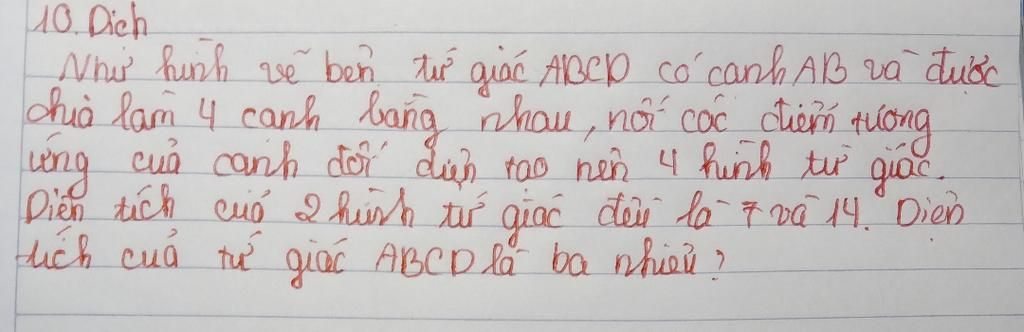 10. Dich
Như hình vẽ bên tứ giác ABCD có canh AB và được
chia lam 4 canh bằng nhau, nối các điểm tương
ứng của canh đối diện tạo nên 4 hình tứ giác.
Diện tích của 2 hình tứ giác đều là 7 và 14. Diện
tích của tứ giác ABCD là ba nhiêu?